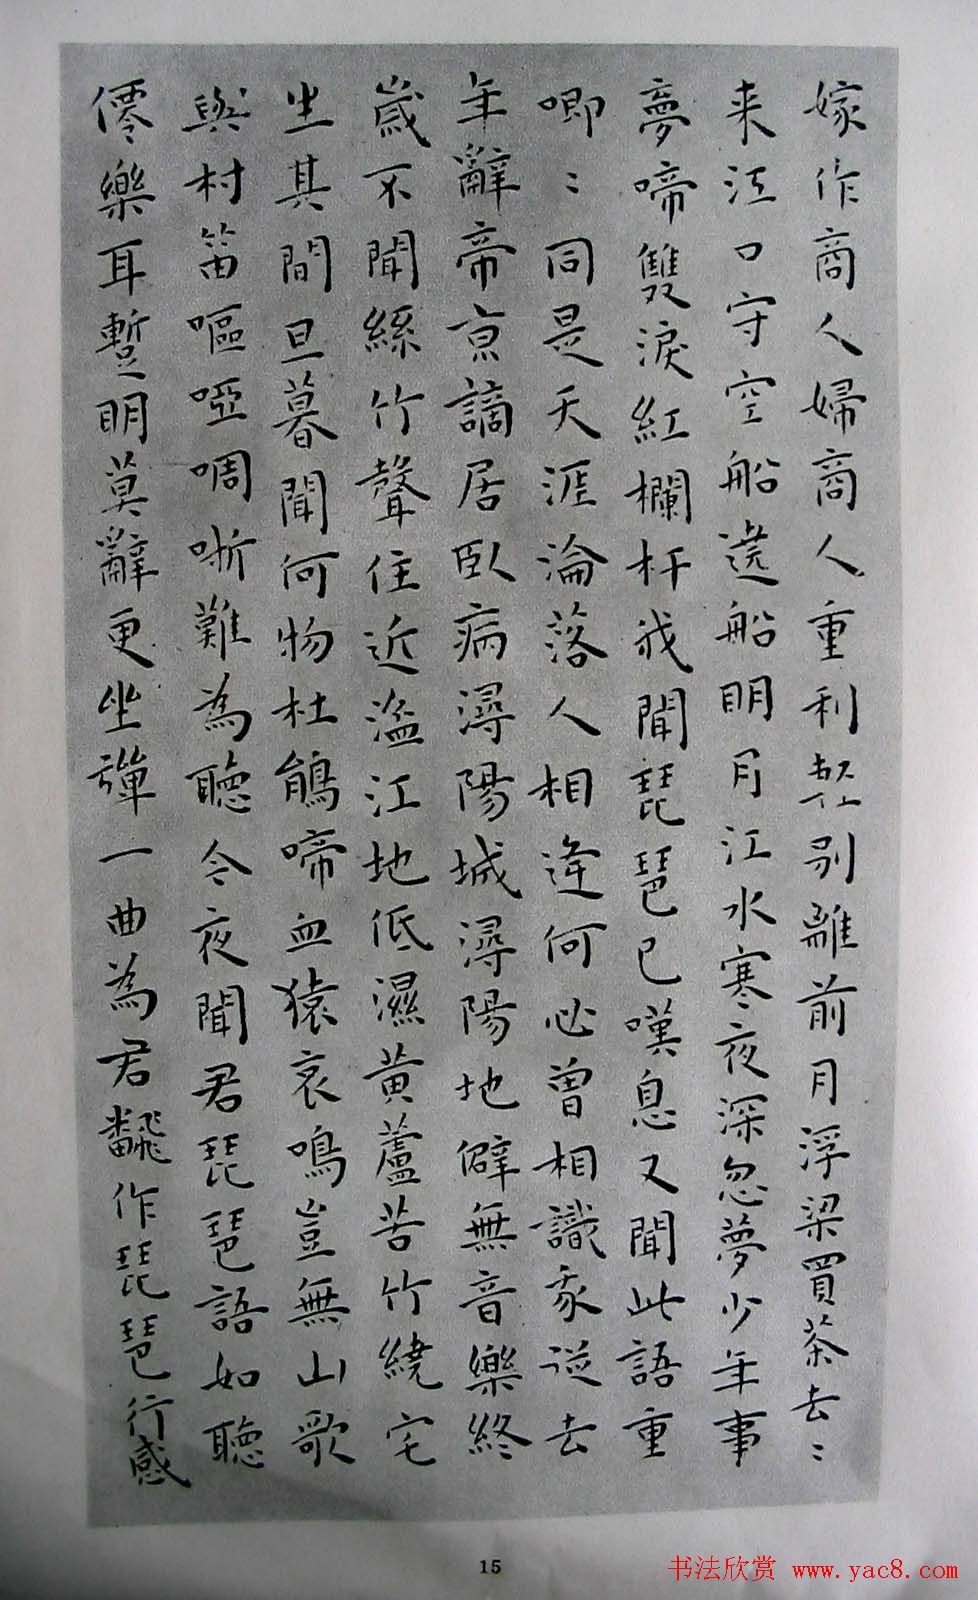 嫁作商人婦商人重利輕别離前月浮梁買茶去〻
来江口守空船遶船明月江水寒夜深忽夢少年事
夢啼雙淚紅欄杆我聞琵琶已嘆息又聞此語重
唧〻同是天涯淪落人相逢何必曾相識我從去
年辭帝京謫居臥病潯陽城潯陽地僻無音樂終
歲不聞絲竹聲住近湓江地低濕黄蘆苦竹繞宅
生其間旦暮聞何物杜鵑啼血猿哀鳴豈無山歌
與村笛嘔啞啁哳難為聽今夜聞君琵琶語如聽
僊樂耳暫明莫辭更坐彈一曲為君飜作琵琶行感
15
书法欣赏 www.yac8.com